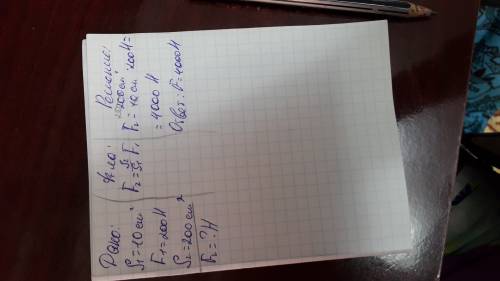 Дано:
S₁=10 см²
F₁=200 Н
S₂=200 см²
F₂=?Н
F₂=S₂/S₁ F₁
Решение:
F₂=200см²/10см ·200Н=
=4000 Н
Ответ: F=4000Н